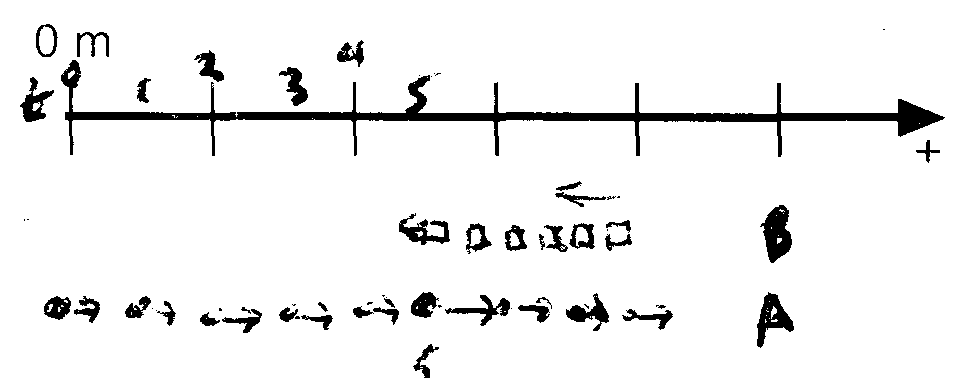 0 m
t 0 1 2 3 4 5
+
B
A
5